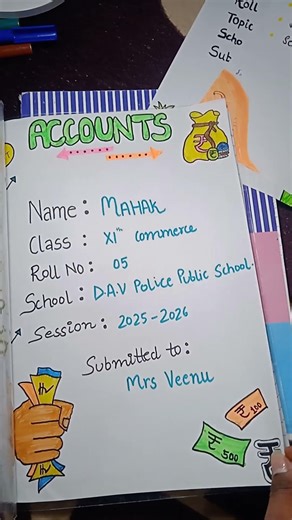 Roll
Topic
Scho
Sub
ACCOUNTS
Name: MAHAK
Class: XIth Commerce
Roll No: 05
School: D.A.V Police Public School.
Session: 2025-2026
Submitted to:
Mrs Veenu
₹ 100
₹ 500
₹